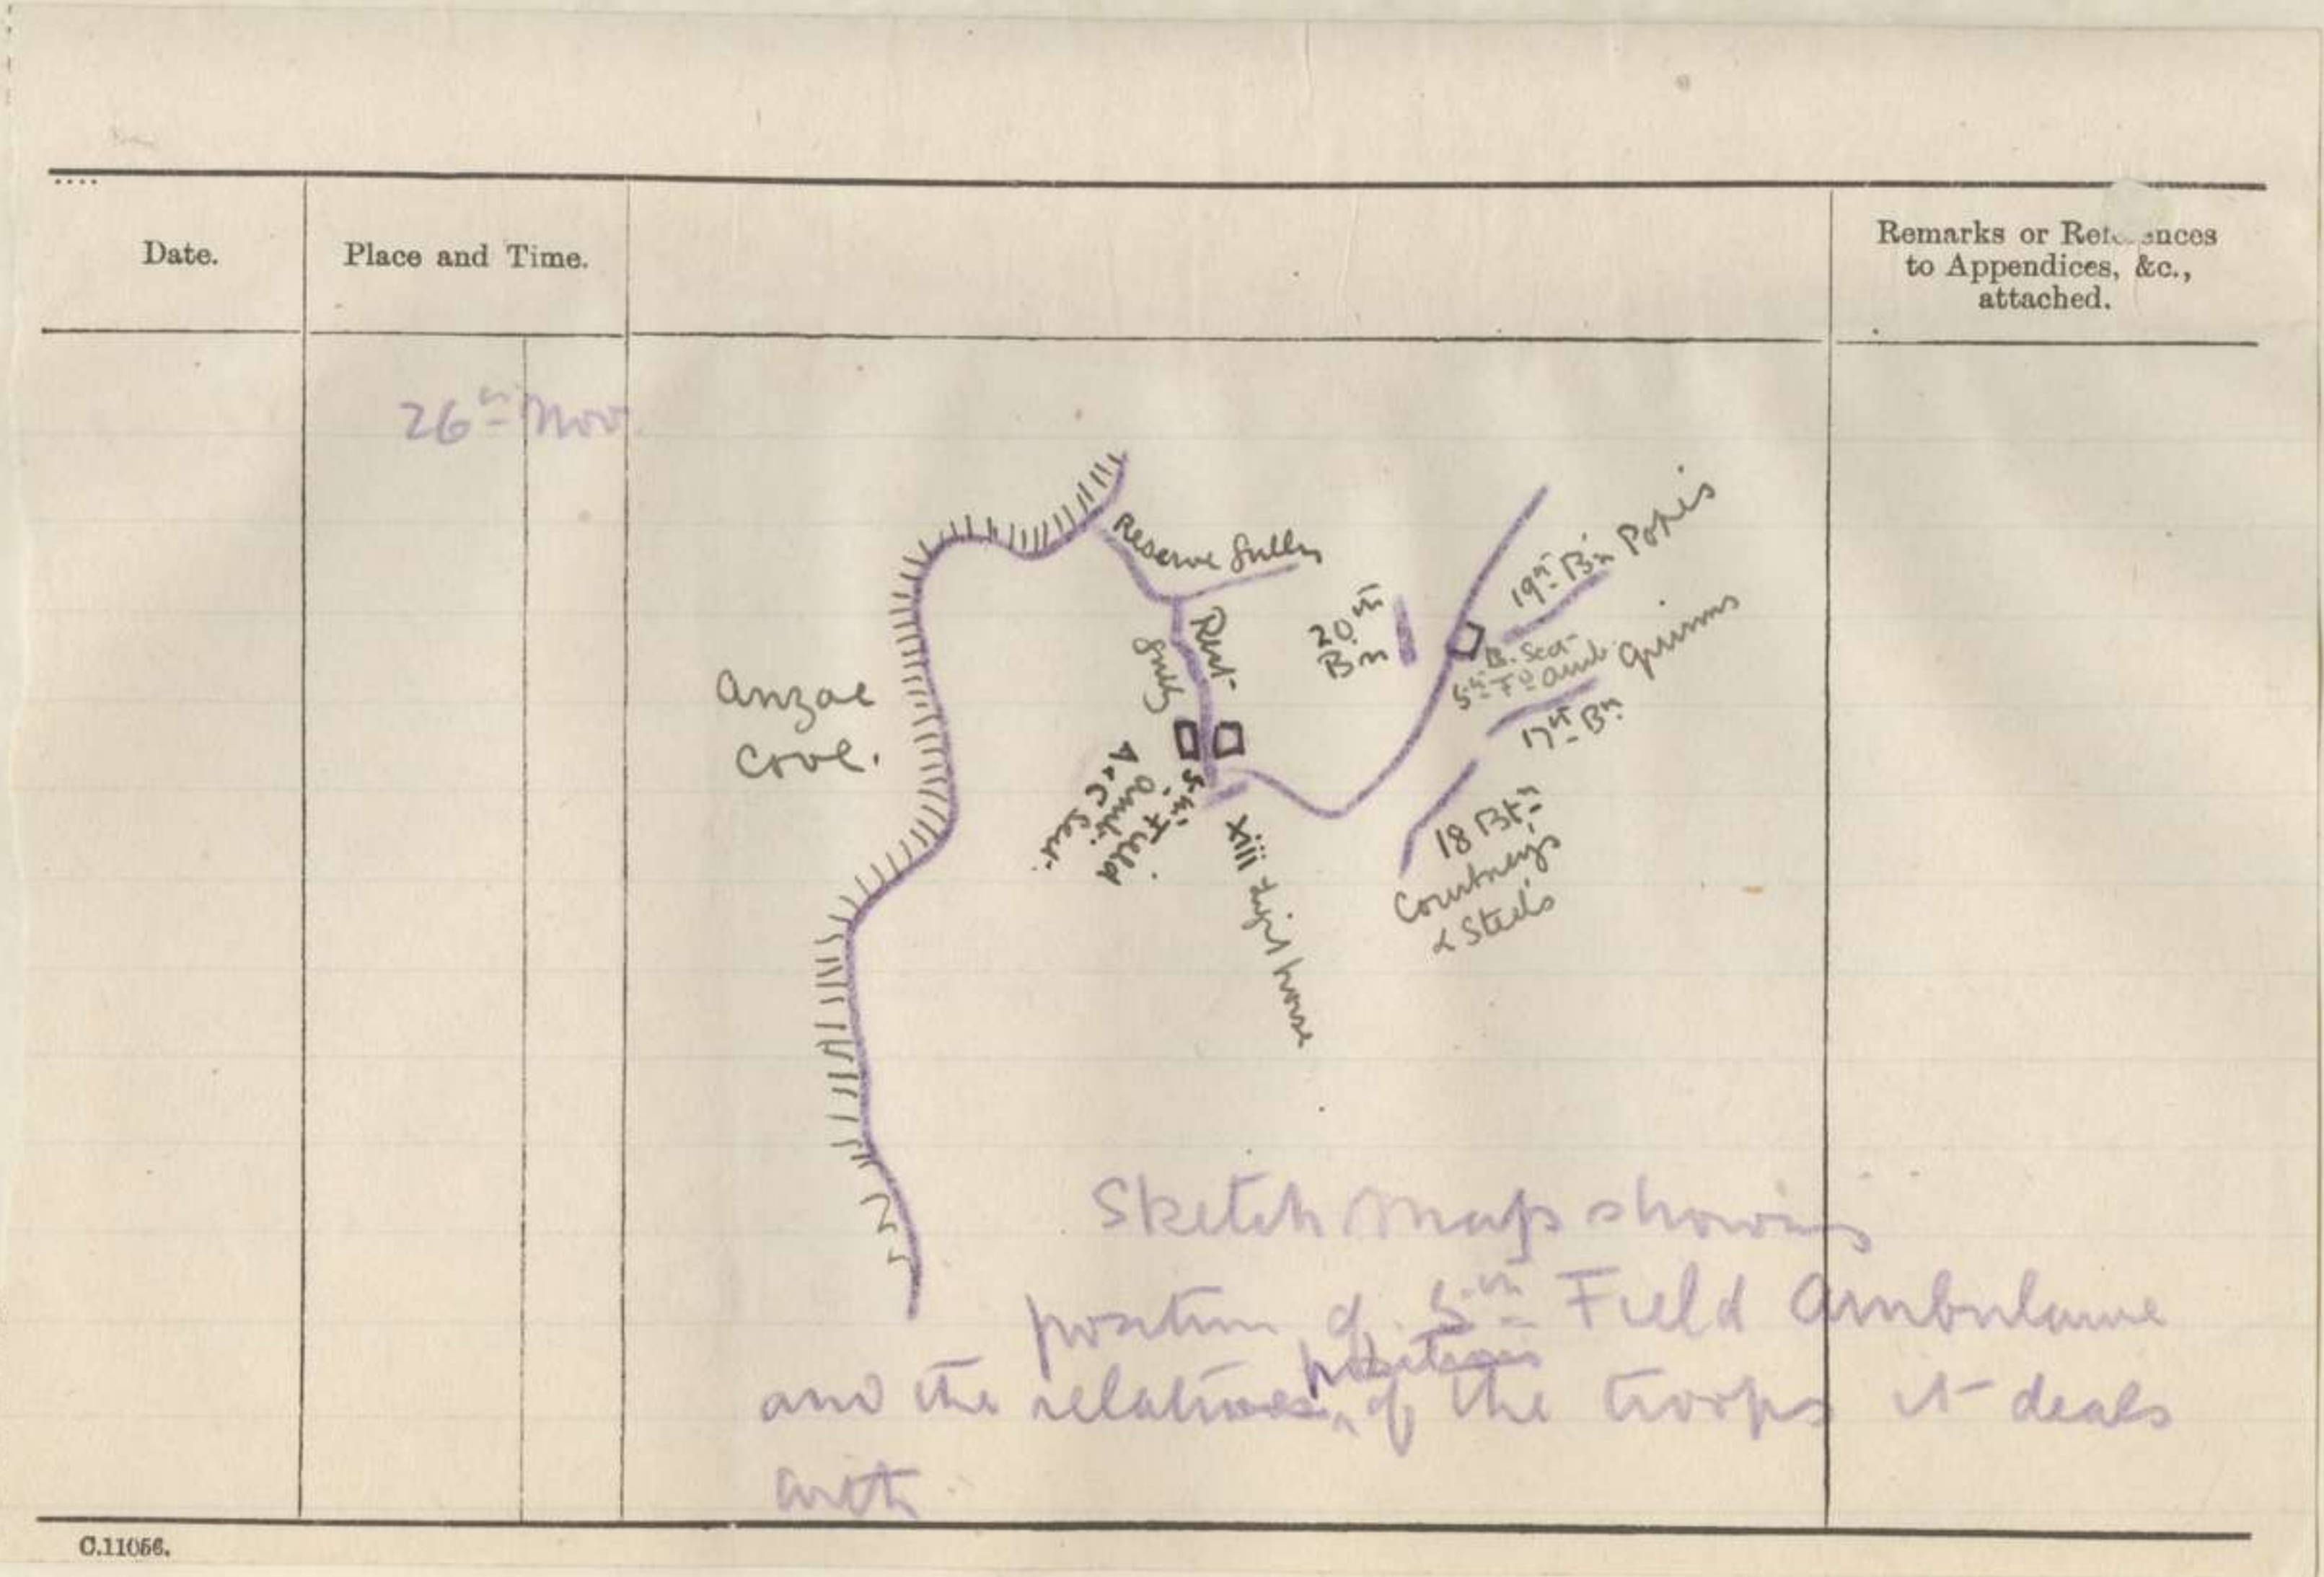 Date.
Place and Time.
Remarks or References
to Appendices, &c.,
attached.
26th Nov.
Reserve Gully
Rest
Gully
Anzac
Cove.
20th
Bn
19th Bn Popes
B. Sect
5th Fd Amb.
Quinns
17th Bn
18 Btn
Courtneys
& Steels
5th Field
Amb.
A & C Sec.
xiii Light horse
Sketch Map showing
position of 5th Field Ambulance
positions
and the relative of the troops it deals
with
C.11056.